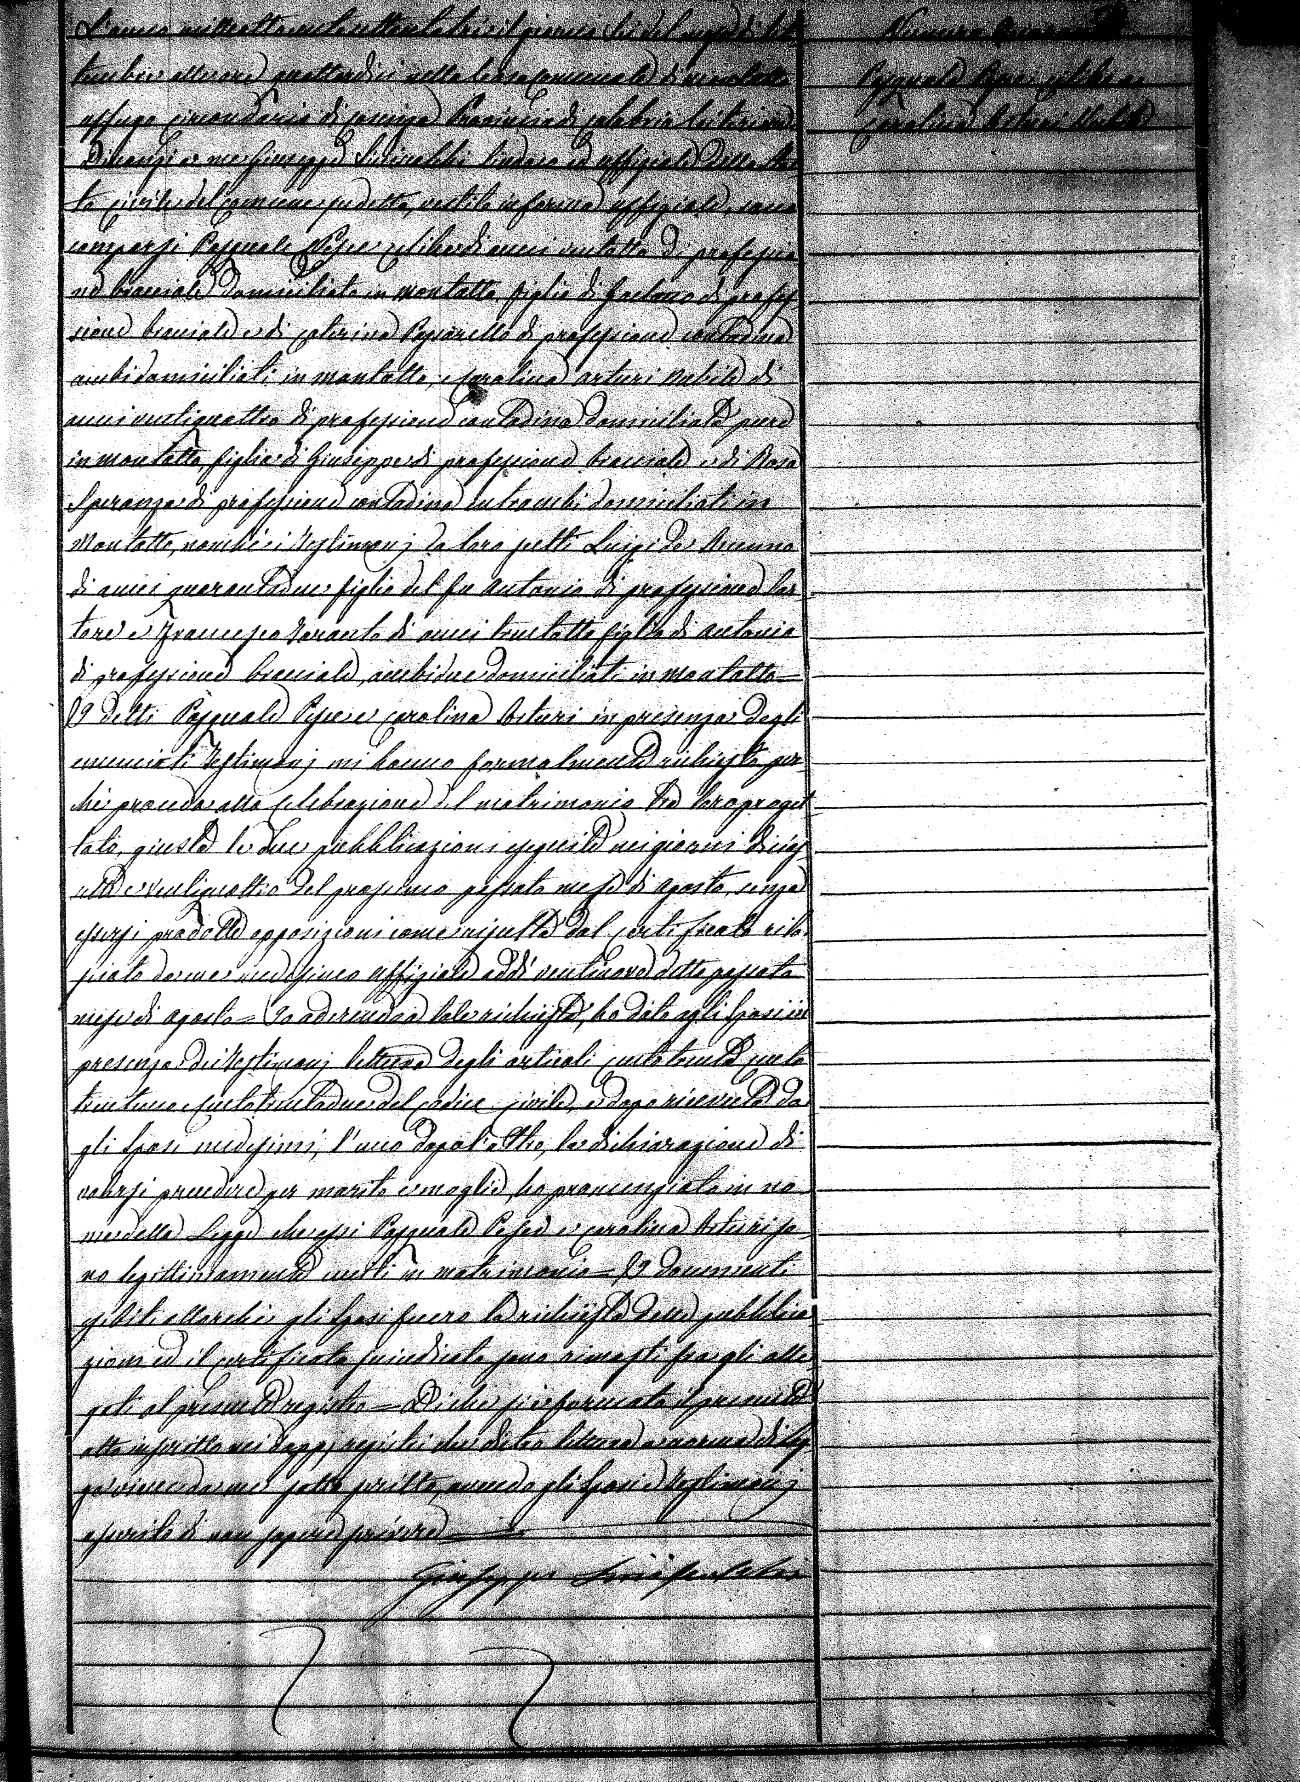 L'anno milleottocentosettantatre il giorno sei del mese di Set
tembre alle ore quattordici nella casa comunale di Montalto
Uffugo circondario di Cosenza Provincia di Calabria Citeriore
Dinanzi a me Giuseppe Sindaco ed uffiziale dello Sta
to civile del comune sudetto, vestito in forma uffiziale, sono
comparsi Pasquale Pepe celibe di anni ventotto di professio
ne bracciale domiciliato in Montalto figlio di Gaetano di profes
sione bracciale e di Caterina Passarello di professione contadina
ambi domiciliati in Montalto; e Carolina Arturi nubile di
anni ventiquattro di professione contadina domiciliata pure
in Montalto, figlia di Giuseppe di professione bracciale e di Rosa
Speranza di professione contadina entrambi domiciliati in
Montalto, nonché i Testimonj da loro scelti Luigi de
di anni quarantadue figlio del fu Antonio di professione sar
tore e Francesco Taranto di anni trentotto figlio di Antonio
di professione bracciale, ambidue domiciliati in Montalto =
I detti Pasquale Pepe e Carolina Arturi in presenza degli
enunciati Testimonj mi hanno formalmente richiesto per
ché proceda alla celebrazione del matrimonio tra loro proget
tato, giusta le due pubblicazioni eseguite nei giorni dicias
sette e ventiquattro del prossimo passato mese di agosto, senza
essersi prodotte opposizioni come risulta dal certificato rila
sciato da me medesimo uffiziale addì ventinove detto passato
mese di agosto = Io aderendo a tale richiesta, ho dato agli sposi in
presenza dei Testimonj lettura degli articoli centotrenta, cento
trentuno e centotrentadue del codice civile, e dopo ricevuta da
gli sposi medesimi, l'uno dopo l'altro, la dichiarazione di
volersi prendere per marito e moglie, ho pronunziato in no
me della Legge che essi Pasquale Pepe e Carolina Arturi so
no legittimamente uniti in matrimonio = I documenti
esibiti allorché gli sposi fecero la richiesta delle pubblica
zioni ed il certificato suindicato sono rimasti fra gli alle
gati al presente registro = Di che si è formato il presente
atto inscritto nei doppj registri che dietro lettura a norma di Leg
ge viene da me sottoscritto, avendo gli sposi e Testimonj
asserito di non sapere scrivere
Giuseppe
Numero
Pasquale Pepe celibe e
Carolina Arturi Nubile